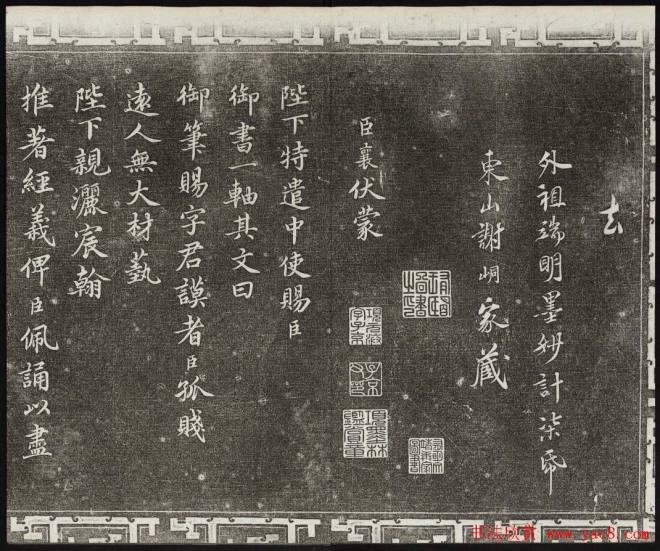 去
外祖端明墨妙計柒帋
東山謝峒家藏
項元汴
字子京
子京
項墨林
鑑賞章
臣襄伏蒙
陛下特遣中使賜臣
御書一軸其文曰
御筆賜字君謨者臣孤賤
遠人無大材藝
陛下親灑宸翰
推著經義俾臣佩誦以盡
书法欣赏 www.yac8.com